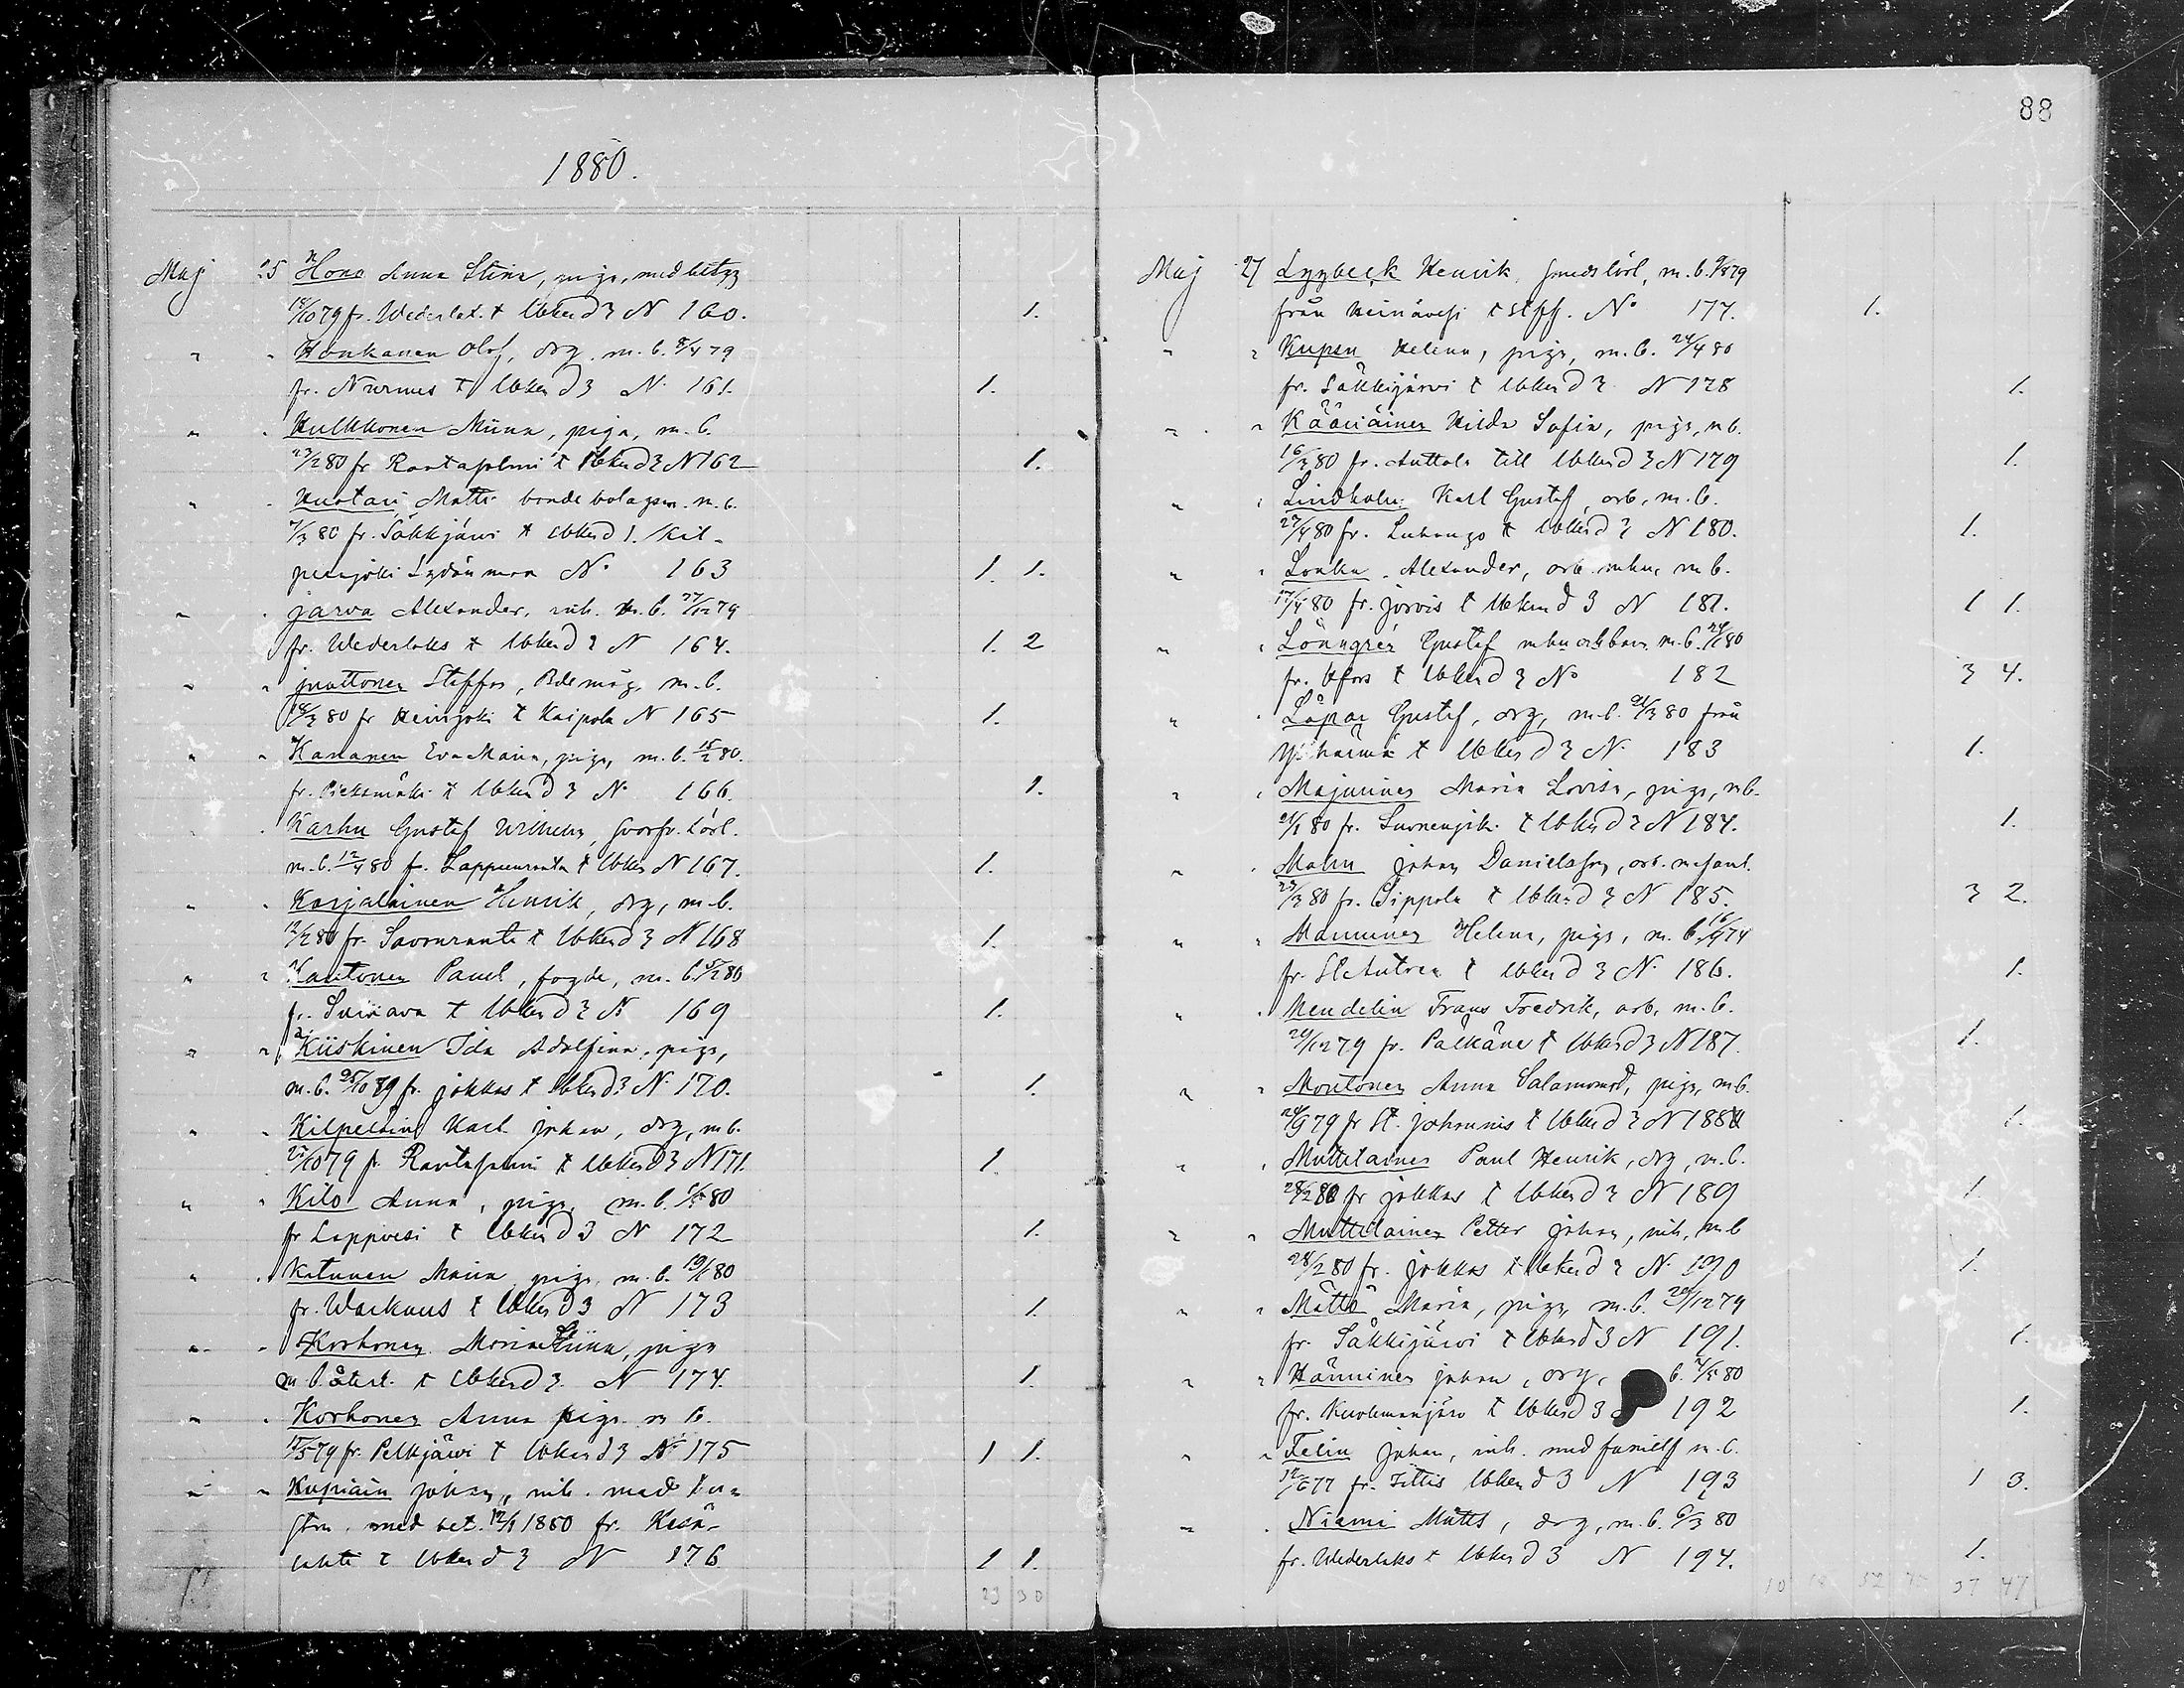 88
1880.
Maj 25 Hono Anna Stina, piga, med betyg
18/10 79 fr. Wederlax t Wbkend 3 N 160. 1.
" " Honkanen Olof, drg. m.b. 8/4 79
fr. Nurmes t Wbken d 3 N. 161. 1.
" " Hulkkonen Miina, piga, m.b.
23/2 80 fr Rantasalmi t Wbken d 3 N 162 1.
" " Huotari Matts bonde bolagsm. m.b.
7/3 80 fr. Säkkjärvi t Wbkend 1. Kil-
peenjoki Sydänmaa No 163 1. 1.
" " Jarva Alexander, inh. m.b. 27/12 79
fr. Wederlaks t Wbken d 3 N 164. 1. 2
" " Juuttonen Steffan, Bdemåg, m.b.
18/3 80 fr Heinjoki t Kaipola N 165 1.
" " Kananen Eva Maria, piga, m.b. 15/2 80.
fr. Pieksämäki t Wbken d 3 N. 166. 1.
" Karhu Gustaf Wilhelm, svarfv. lärl.
m.b. 12/4 80 fr. Lappeenranta t Wbken N 167. 1.
" " Karjalainen Henrik, drg, m.b.
12/2 80 fr. Savonranta t Wbken d 3 N 168 1.
" " Kautonen Paul, fogde, m.b. 5/2 80
fr. Suinava t Wbken d 3 N 169 1.
" " Kiiskinen Ida Adolfina, piga,
m.b. 25/10 89 fr. Jokkas t Wbken d 3 N. 170. 1.
" " Kilpeläin Karl Johan, drg, m.b.
22/10 79 fr. Rantasalmi t Wbken d 3 N 171. 1.
" " Kilo Anna, piga, m.b. 6/5 80
fr Lappvesi t Wbken d 3 N 172 1.
" " Ketunen Maria piga, m.b. 19/1 80
fr. Warkaus t Wbken d 3 N 173 1.
" " Korhonen Maria Stiina, piga
m.b. återl. t Wbken d 3. N 174. 1.
" " Korhonen Anna piga m b.
15/5 79 fr. Pelkjärvi t Wbken d 3 N. 175 1 1.
" " Kupiain Johan, inh. med hu-
stru. med bet. 12/1 1880 fr. Kesä-
lahti t Wbken d 3 N 176 1 1.
23 30
Maj 27 Lyybeck Henrik, smedslärl, m.b. 9/8 79
från Heinävesi t st pts. No 177. 1.
" " Kupsu Helena, piga, m.b. 24/4 80
fr. Säkkijärvi t Wbken d 3 N 178 1.
" " Kääriäinen Hilda Sofia, piga, m b.
16/3 80 fr. Anttola till Wbken d 3 N 179 1.
" " Lindholm Karl Gustaf, arb, m.b.
27/4 80 fr. Luhanga t Wbken d 3 N 180. 1.
" " Lonka Alexander, arb. m hu, m b.
17/4 80 fr. Jorois t Wbken d 3 N 181. 1 1.
" " Lönngrén Gustaf m hu och barn m.b. 24/1 80
fr. Hfors t Wbken d 3 No 182 3 4.
" " Läpai Gustaf, drg, m.b. 21/3 80 från
Ylihärmä t Wbken d 3 N. 183 1.
" " Majurinen Maria Lovisa, piga, m b.
21/1 80 fr. Suonenjoki t Wbken d 3 N 184. 1.
" " Malm Johan Danielsson, arb. m faml.
23/3 80 fr. Sippola t Wbken d 3 N 185. 3 2.
" " Manninen Helena, piga, m. b. 16/9 74
fr. St Antrea t Wbken d 3 N. 186. 1.
" " Mendelin Frans Fredrik, arb, m.b.
24/12 79 fr. Pälkäne t Wbken d 3 N 187. 1.
" " Montonen Anna Salamonsd, piga, m.b.
24/9 79 fr St. Johannis t Wbken d 3 N 188 1.
" " Muttilainen Paul Henrik, drg, m.b.
28/2 80 fr Jokkas t Wbken d 3 N 189 1.
" " Muttilainen Petter Johan, inh, m.b
28/2 80 fr. Jokkas t Wbken d 3 N. 190 1.
" " Mättö Maria, piga, m.b. 20/12 79
fr. Säkkijärvi t Wbken d 3 N 191. 1.
" " Hänninen Johan, drg, b. 4/5 80
fr. Kuolemanjärv t Wbken d 3 192 1.
" " Felin Johan, inh. med familj m.b.
12/6 77 fr. Iittis Wbken d 3 N 193 1 3.
" " Niemi Matts, drg, m.b. 6/3 80
fr. Wederlaks t Wbken d 3 N 194. 1.
37 47